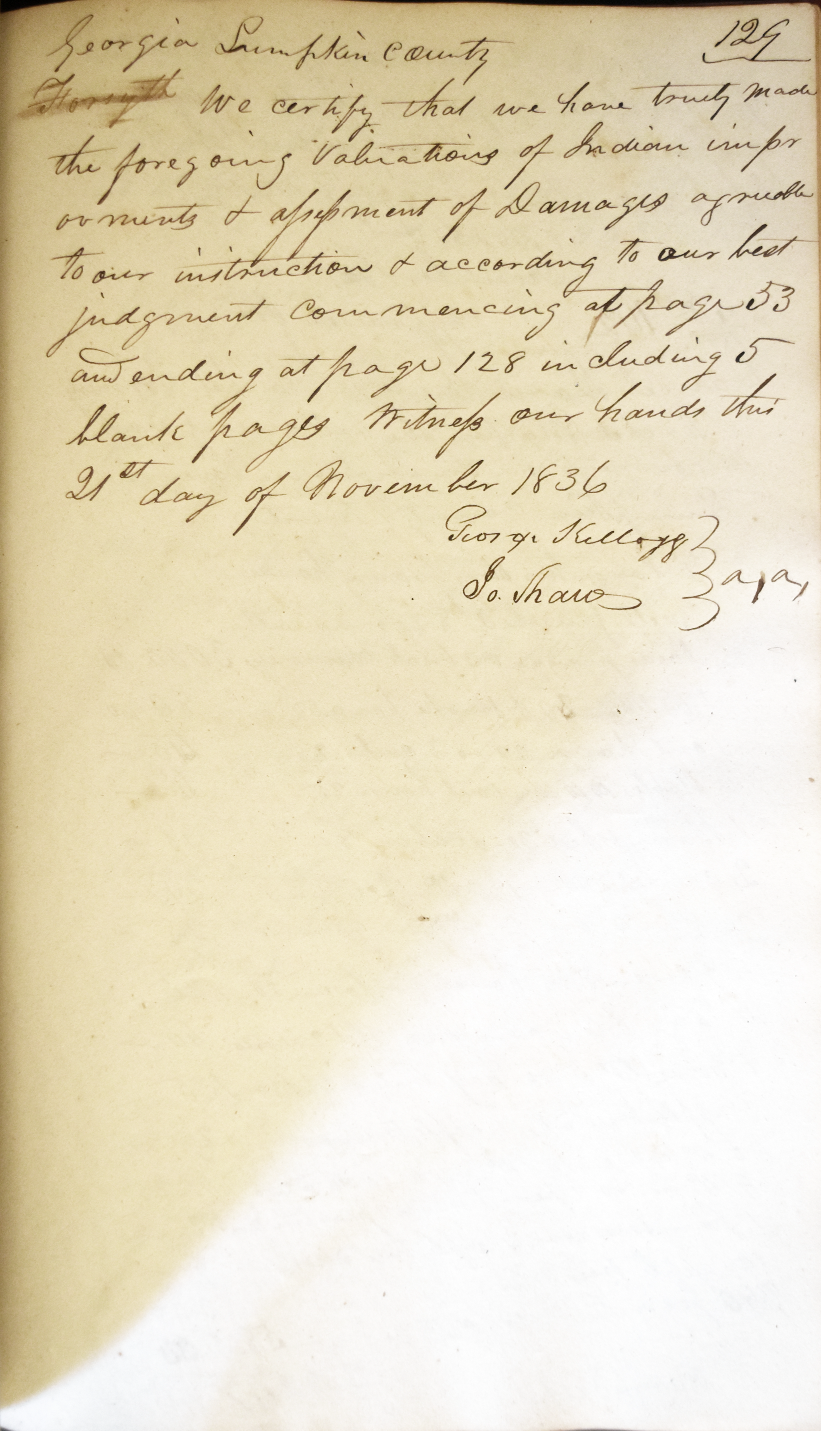 129
Georgia Lumpkin County
Forsyth We certify that we have truely made
the foregoing Valuations of Indian impr
ovments & assessment of Damages agreeable
to our instruction & according to our best
judgment commencing at page 53
and ending at page 128 including 5
blank pages Witness our hands this
21st day of November 1836
George Kellogg
Jo. Shaw
a, a,